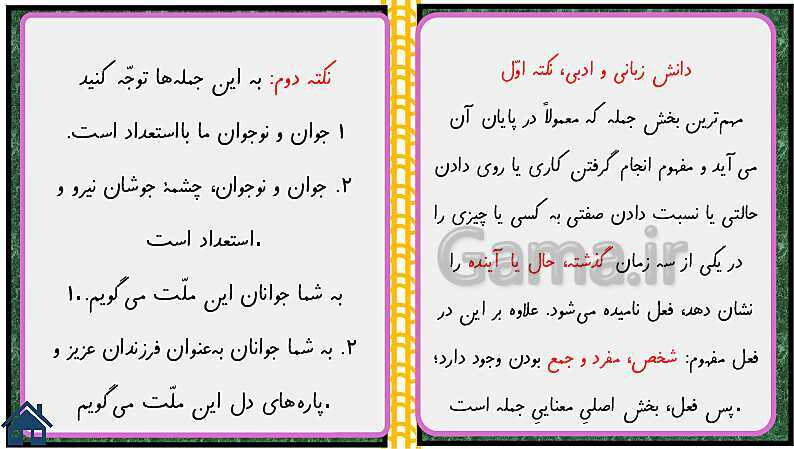 دانش زبانی و ادبی، نکته اوّل
مهم‌ترین بخش جمله که معمولاً در پایان آن
می آید و مفهوم انجام گرفتن کاری یا روی دادن
حالتی یا نسبت دادن صفتی به کسی یا چیزی را
در یکی از سه زمان گذشته، حال یا آینده را
نشان دهد، فعل نامیده می‌شود. علاوه بر این در
فعل مفهوم: شخص، مفرد و جمع بودن وجود دارد؛
.پس فعل، بخش اصلیِ معناییِ جمله است
نکته دوم: به این جمله‌ها توجّه کنید
۱ جوان و نوجوان ما بااستعداد است.
۲. جوان و نوجوان، چشمهٔ جوشان نیرو و
.استعداد است
به شما جوانان این ملّت می‌گویم.۱.
۲. به شما جوانان به‌عنوان فرزندان عزیز و
.پاره‌های دل این ملّت می‌گویم
Gama.ir